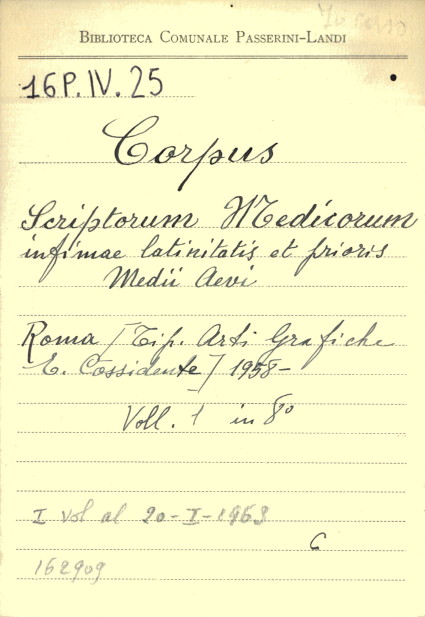 In corso
BIBLIOTECA COMUNALE PASSERINI-LANDI
16P.IV.25
Corpus
Scriptorum Medicorum
infimae latinitatis et prioris
Medii Aevi
Roma [Tip. Arti Grafiche
E. Cossidente] 1958-
Voll. 1 in 8º
I vol al 20-I-1963
G
162909